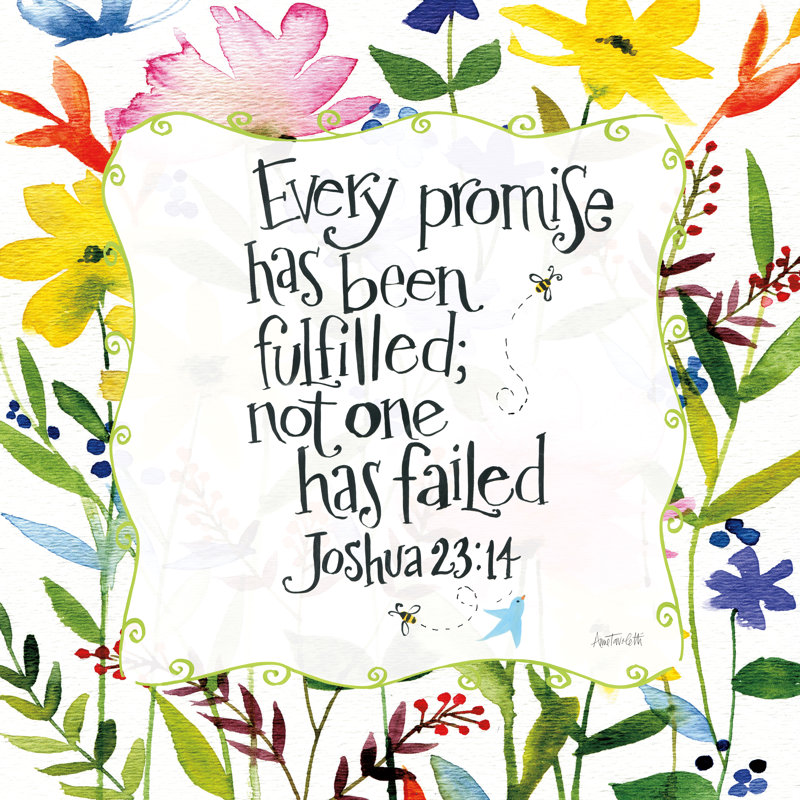 Every promise
has been
fulfilled;
not one
has failed
Joshua 23:14
Anne Tavoletti